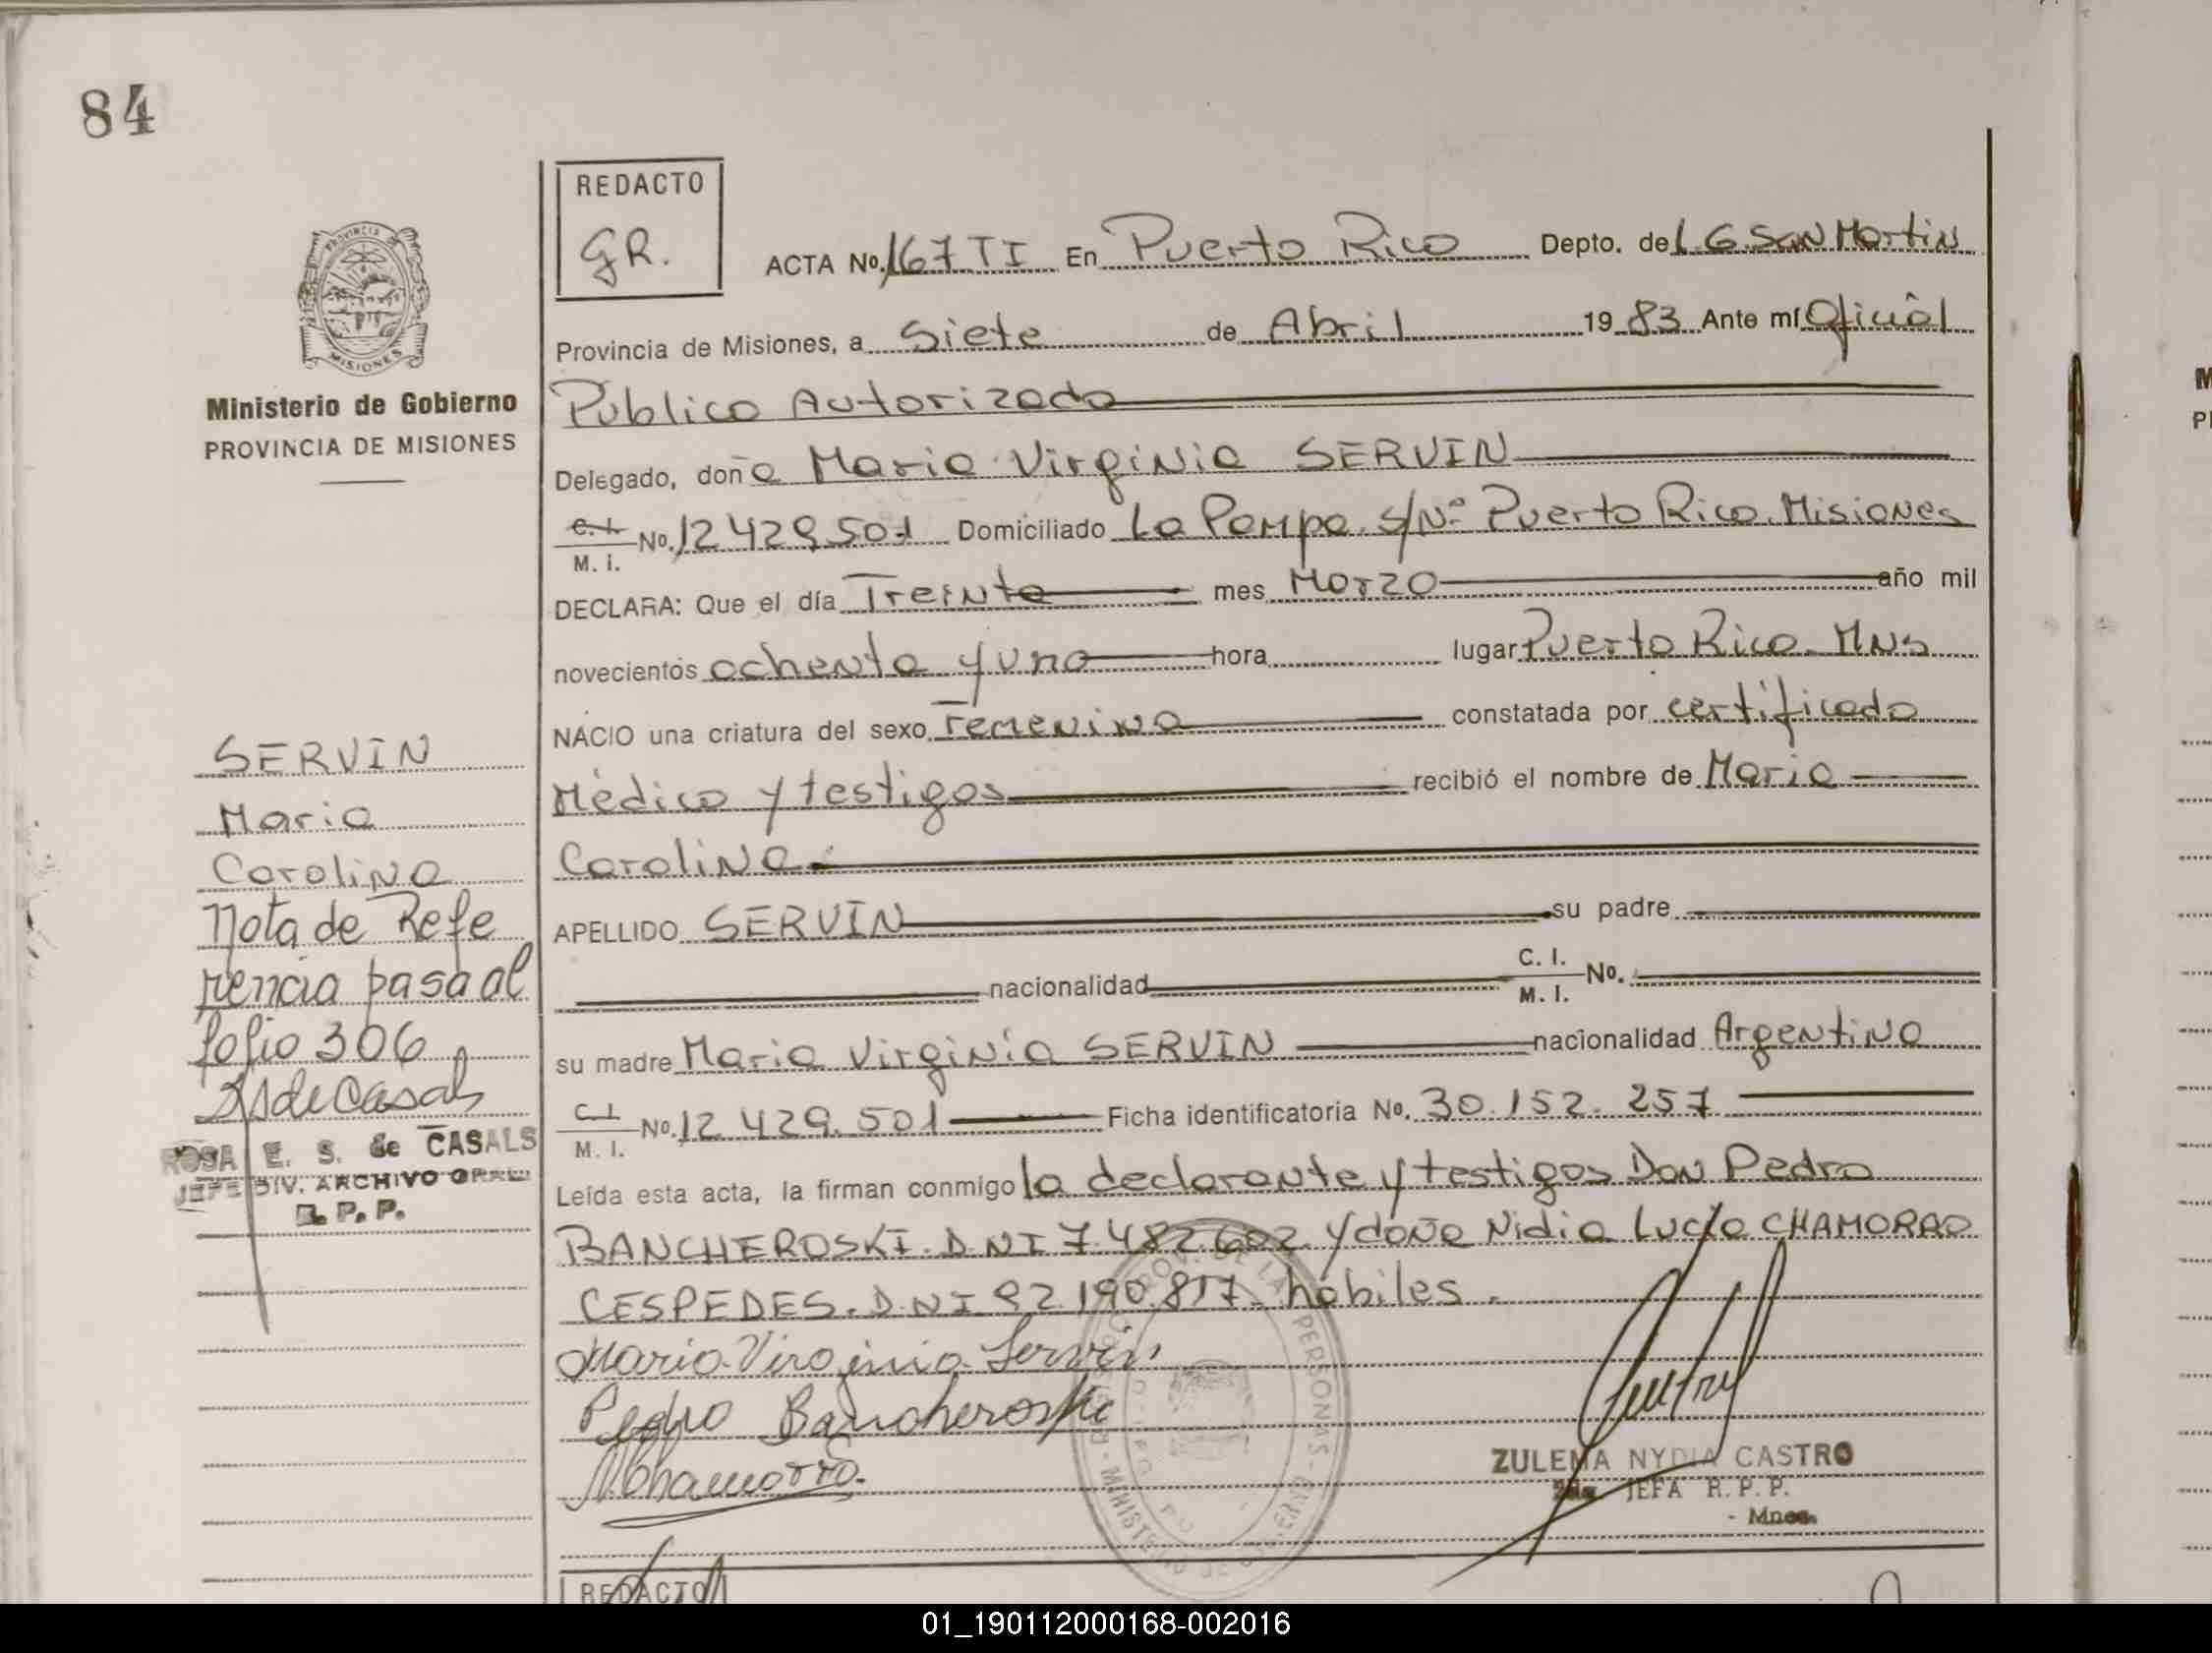 84
REDACTO
GR.
ACTA No. 167 TI En Puerto Rico Depto. de L.G. San Martin
Provincia de Misiones, a Siete de Abril 1983 Ante mí Oficial
Público Autorizado
Delegado, doña Maria Virginia SERVIN
C.I. M. I. No. 12 429 501 Domiciliado La Pampa s/Nº Puerto Rico. Misiones
DECLARA: Que el día Treinta mes Marzo año mil
novecientos ochenta y uno hora lugar Puerto Rico. Mns
NACIO una criatura del sexo Femenino constatada por certificado
Médico y testigos recibió el nombre de Maria
Carolina
APELLIDO SERVIN su padre
nacionalidad C. I. M. I. No.
su madre Maria Virginia SERVIN nacionalidad Argentina
C.I. M. I. No. 12 429. 501 Ficha identificatoria No. 30.152.257
Leída esta acta, la firman conmigo la declarante y testigos Don Pedro
BANCHEROSKI. D.NI 7.482.602 y doña Nidia Lucia CHAMORRO
CESPEDES. D.NI 92.190.817. hábiles.
Maria Virginia Servin
Pedro Bancheroski
N. Chamorro.
ZULEMA NYDIA CASTRO
JEFA R. P. P.
- Mnes.
PROVINCIA DE
MISIONES
Ministerio de Gobierno
PROVINCIA DE MISIONES
SERVIN
Maria
Carolina
Nota de Refe
rencia pasa al
folio 306
RSdeCasals
ROSA E. S. de CASALS
JEFE DIV. ARCHIVO GRAL.
R. P. P.
REDACTO
01_190112000168-002016